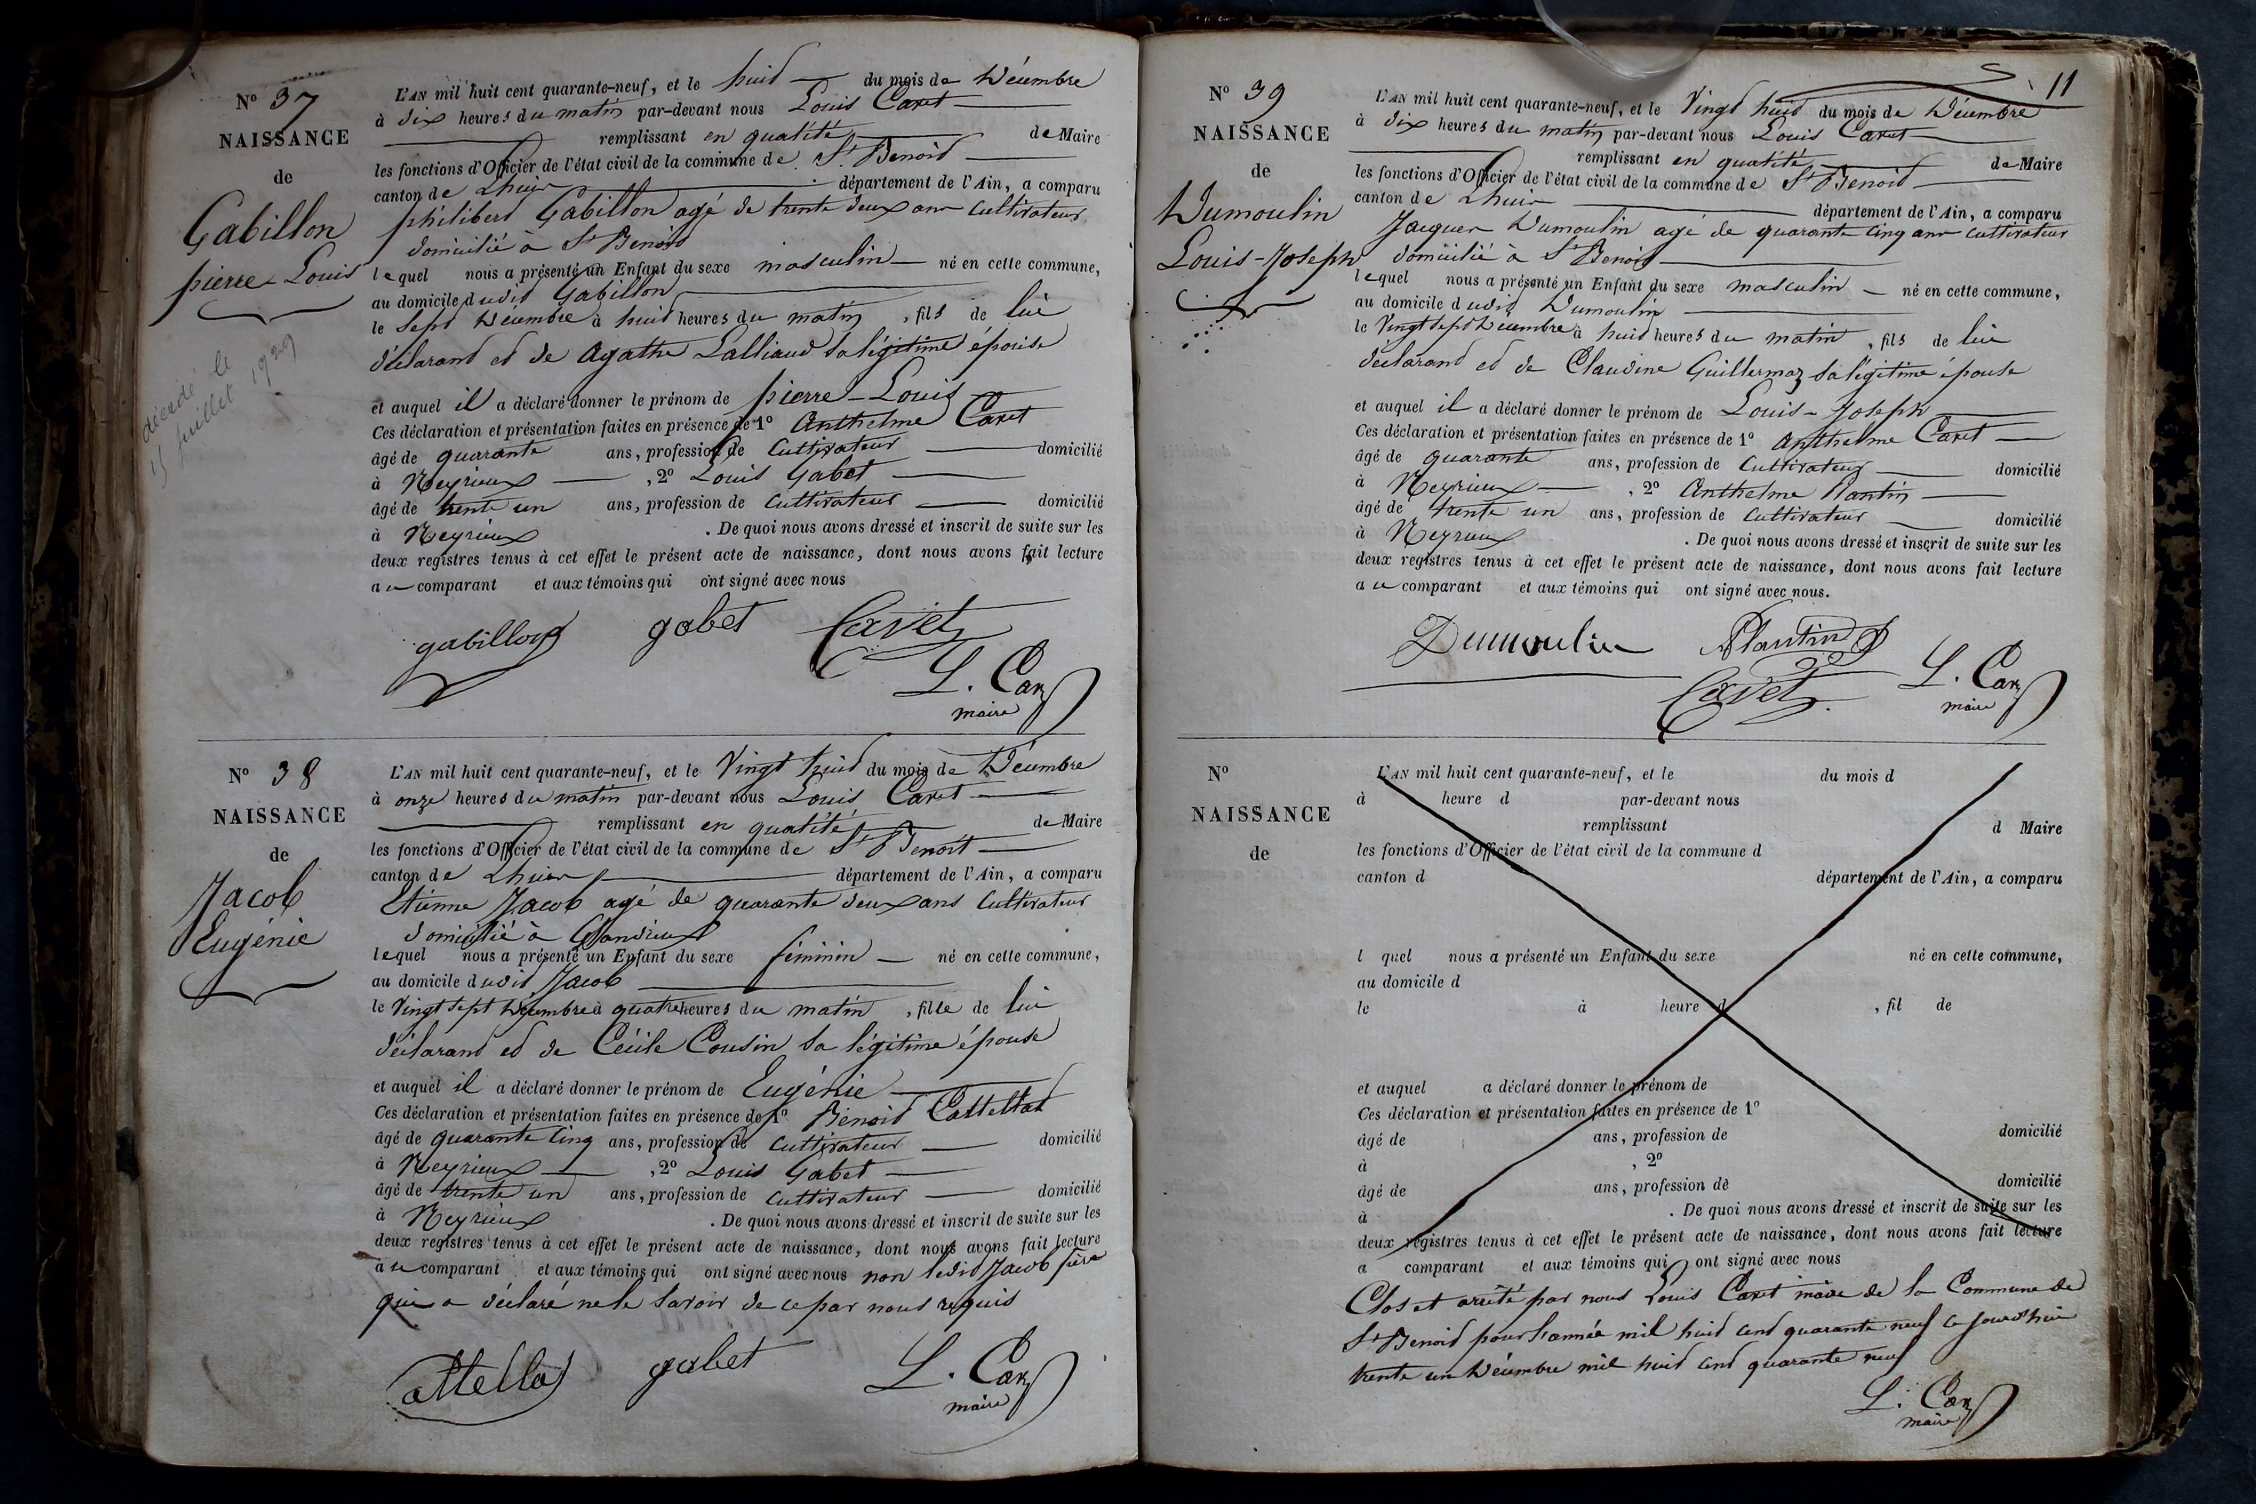 N° 37
NAISSANCE
de
Gabillon
pierre-Louis
décédé le
15 juillet 1929
L'AN mil huit cent quarante-neuf, et le huit du mois de Décembre
à dix heures du matin par-devant nous Louis Cavet
remplissant en qualité de Maire
les fonctions d'Officier de l'état civil de la commune de St Benoit
canton de Lhuis département de l'Ain, a comparu
philibert Gabillon agé de trente deux ans cultivateur
domicilié à St Benoit
lequel nous a présenté un Enfant du sexe masculin né en cette commune,
au domicile dudit Gabillon
le Sept Décembre à huit heures du matin, fils de lui
déclarant et de Agathe Lalliaud sa légitime épouse
et auquel il a déclaré donner le prénom de pierre-Louis
Ces déclaration et présentation faites en présence de 1° Anthelme Cavet
âgé de quarante ans, profession de cultivateur domicilié
à Neyrieux, 2° Louis Gabet
âgé de trente un ans, profession de cultivateur domicilié
à Neyrieux. De quoi nous avons dressé et inscrit de suite sur les
deux registres tenus à cet effet le présent acte de naissance, dont nous avons fait lecture
au comparant et aux témoins qui ont signé avec nous
gabillon gabet Cavet
L. Cavet
maire
N° 38
NAISSANCE
de
Jacob
Eugénie
L'AN mil huit cent quarante-neuf, et le Vingt huit du mois de Décembre
à onze heures du matin par-devant nous Louis Cavet
remplissant en qualité de Maire
les fonctions d'Officier de l'état civil de la commune de St Benoit
canton de Lhuis département de l'Ain, a comparu
Etienne Jacob agé de quarante deux ans cultivateur
domicilié à Glandieux
lequel nous a présenté un Enfant du sexe féminin né en cette commune,
au domicile dudit Jacob
le Vingt sept Décembre à quatre heures du matin, fille de lui
déclarant et de Cécile Cousin sa légitime épouse
et auquel il a déclaré donner le prénom de Eugénie
Ces déclaration et présentation faites en présence de 1° Benoit Cattellat
âgé de quarante cinq ans, profession de cultivateur domicilié
à Neyrieux, 2° Louis Gabet
âgé de trente un ans, profession de cultivateur domicilié
à Neyrieux. De quoi nous avons dressé et inscrit de suite sur les
deux registres tenus à cet effet le présent acte de naissance, dont nous avons fait lecture
au comparant et aux témoins qui ont signé avec nous non ledit Jacob père
qui a déclaré ne le savoir de ce par nous requis
gabet L. Cavet
maire
11
N° 39
NAISSANCE
de
Dumoulin
Louis-Joseph
L'AN mil huit cent quarante-neuf, et le Vingt huit du mois de Décembre
à dix heures du matin par-devant nous Louis Cavet
remplissant en qualité de Maire
les fonctions d'Officier de l'état civil de la commune de St Benoit
canton de Lhuis département de l'Ain, a comparu
Jacques Dumoulin agé de quarante cinq ans cultivateur
domicilié à St Benoit
lequel nous a présenté un Enfant du sexe masculin né en cette commune,
au domicile dudit Dumoulin
le Vingt sept Décembre à huit heures du matin, fils de lui
déclarant et de Claudine Guillermoz sa légitime épouse
et auquel il a déclaré donner le prénom de Louis-Joseph
Ces déclaration et présentation faites en présence de 1° Anthelme Cavet
âgé de quarante ans, profession de cultivateur domicilié
à Neyrieux, 2° Anthelme Plantin
âgé de trente un ans, profession de cultivateur domicilié
à Neyrieux. De quoi nous avons dressé et inscrit de suite sur les
deux registres tenus à cet effet le présent acte de naissance, dont nous avons fait lecture
au comparant et aux témoins qui ont signé avec nous.
Dumoulin Plantin
Cavet L. Cavet
maire
N°
NAISSANCE
de
L'AN mil huit cent quarante-neuf, et le du mois d
à heure d par-devant nous
remplissant d Maire
les fonctions d'Officier de l'état civil de la commune d
canton d département de l'Ain, a comparu
l quel nous a présenté un Enfant du sexe né en cette commune,
au domicile d
le à heure d , fil de
et auquel a déclaré donner le prénom de
Ces déclaration et présentation faites en présence de 1°
âgé de ans, profession de domicilié
à , 2°
âgé de ans, profession de domicilié
à . De quoi nous avons dressé et inscrit de suite sur les
deux registres tenus à cet effet le présent acte de naissance, dont nous avons fait lecture
a comparant et aux témoins qui ont signé avec nous
Clos et arrêté par nous Louis Cavet maire de la Commune de
St Benoit pour l'année mil huit cent quarante neuf ce jourd'hui
trente un Décembre mil huit cent quarante neuf
L. Cavet
maire